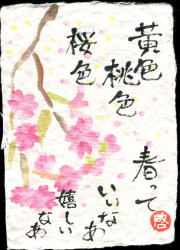 黄色
桃色
桜色
春って
いいなあ
嬉しい
なあ